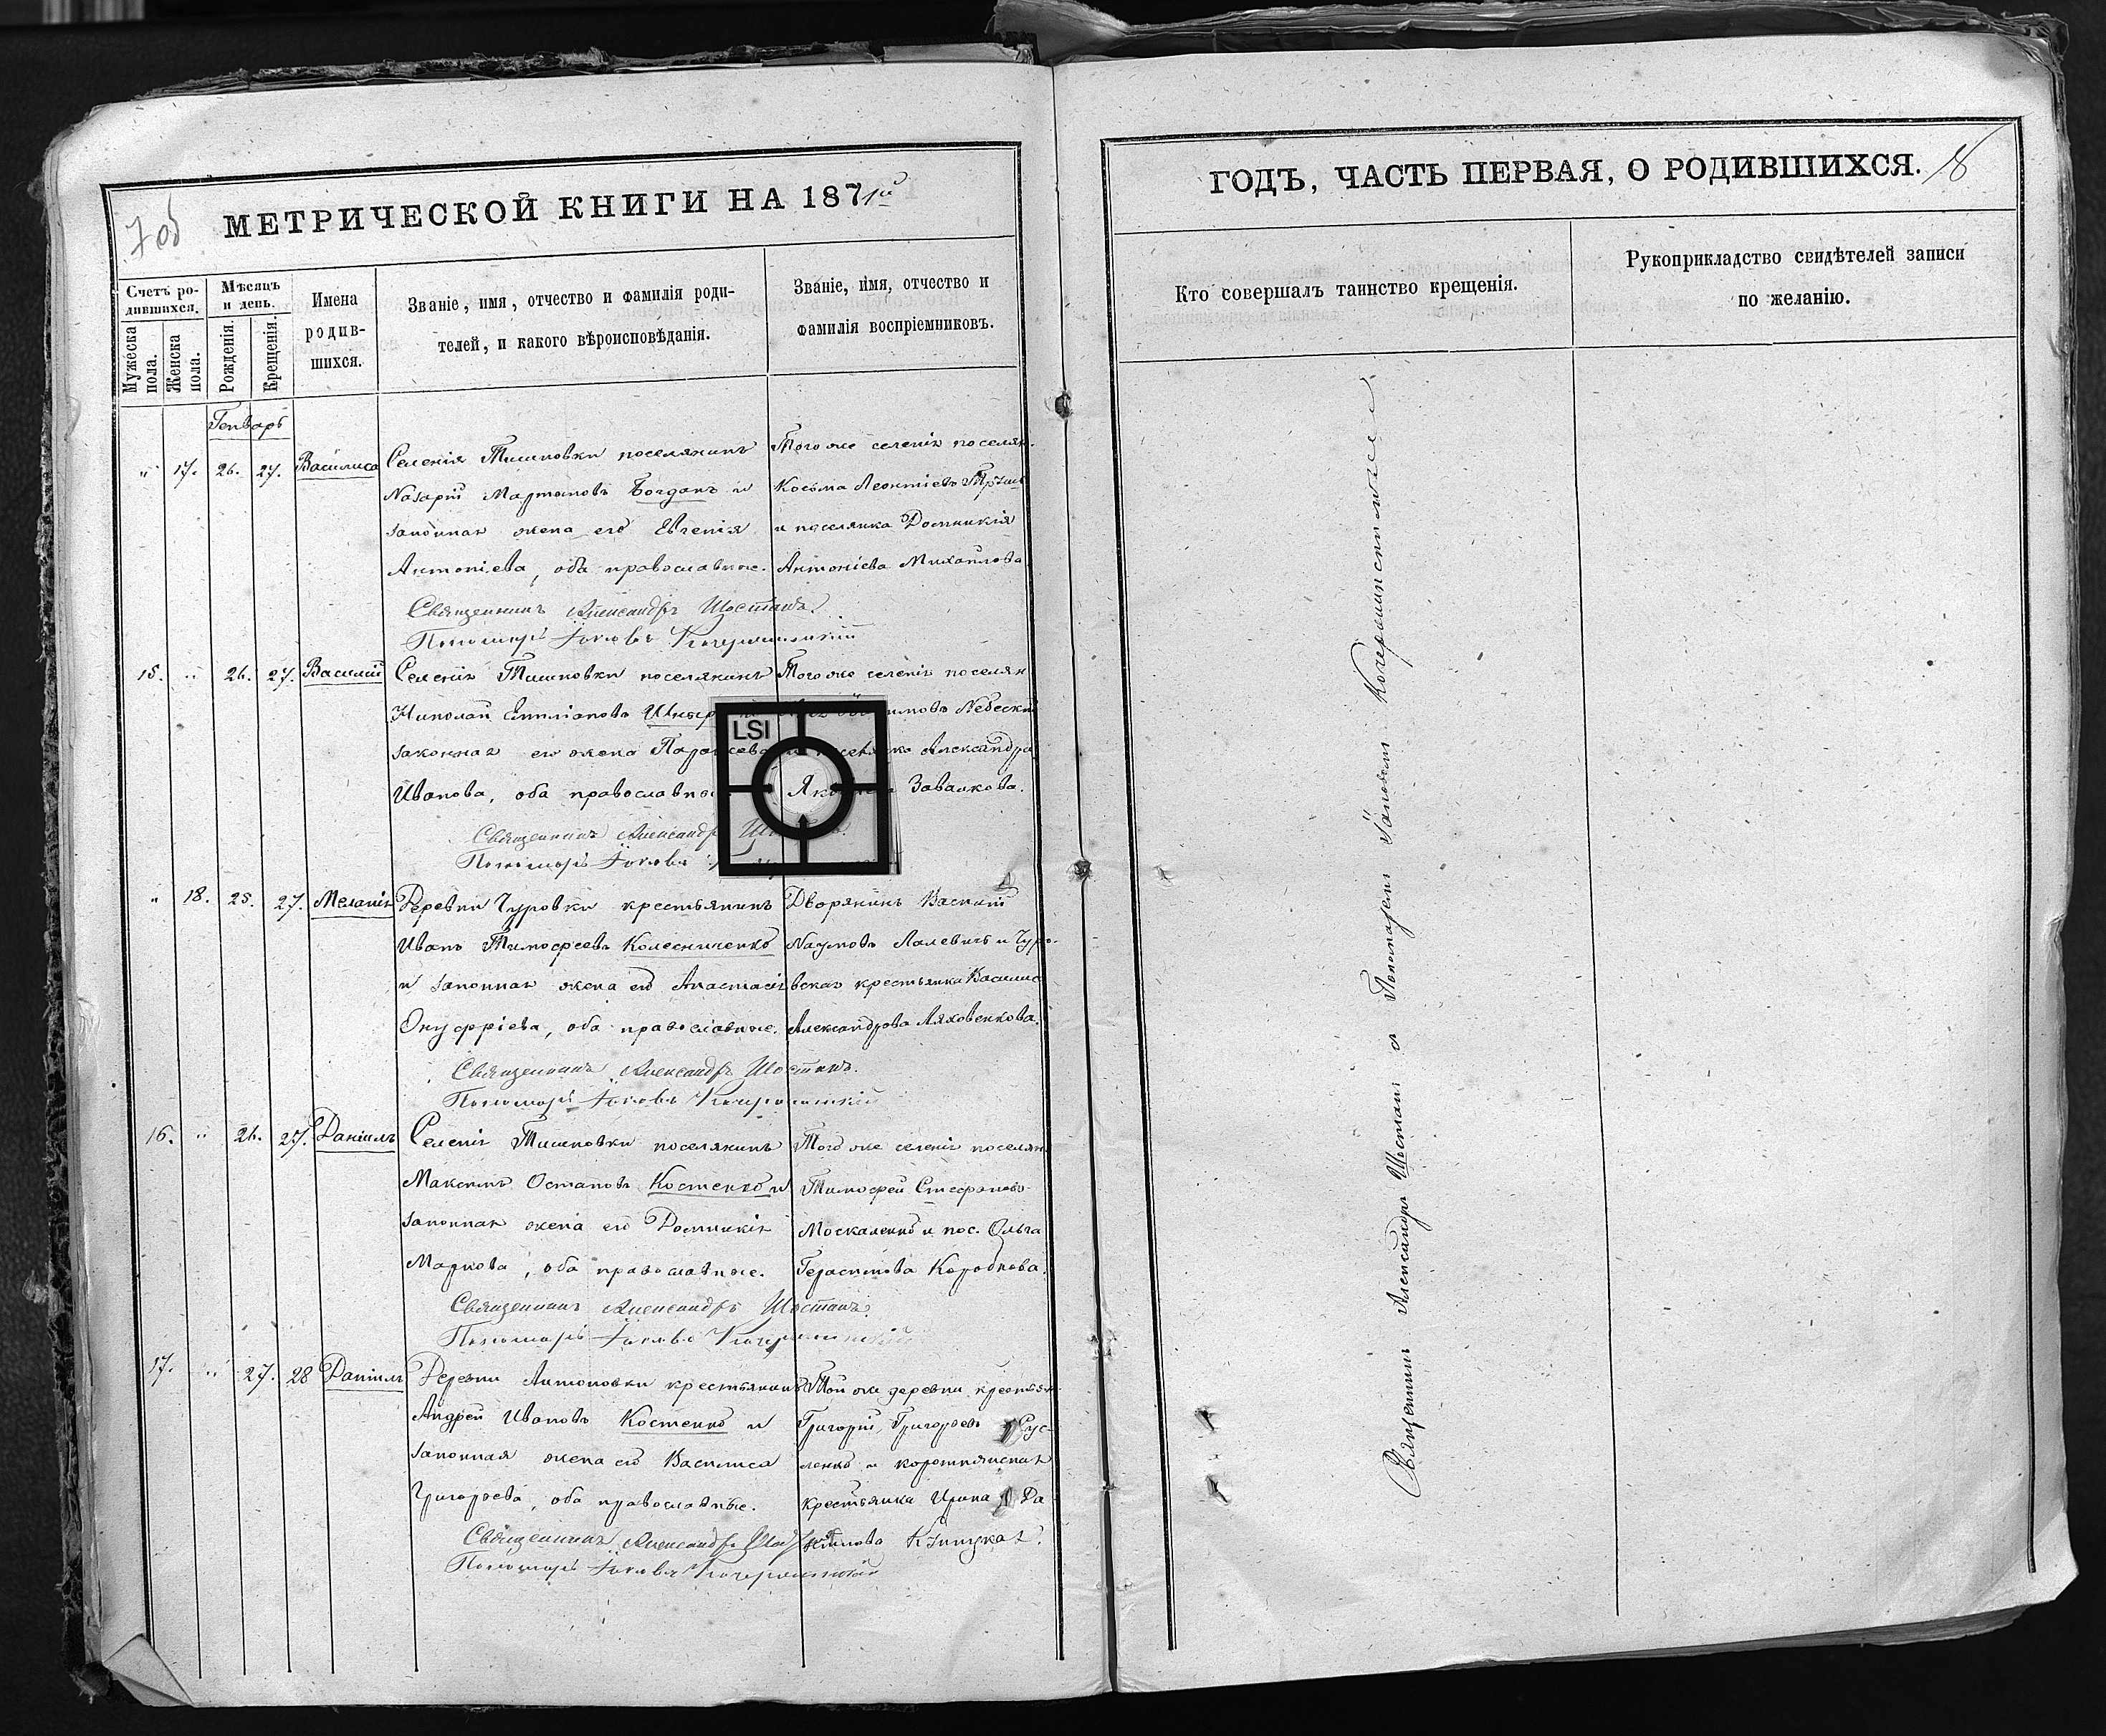 705
МЕТРИЧЕСКОЙ КНИГИ НА 1871й
Счетъ ро-
дившихся.
Мужеска пола.
Женска пола.
Мѣсяцъ
и день.
Рожденія.
Крещенія.
Имена
родив-
шихся.
Званіе, имя, отчество и фамилія роди-
телей, и какого вѣроисповѣданія.
Званіе, имя, отчество и
фамилія воспріемниковъ.
Генварь
" 17. 26. 27. Василиса
Селенія Тишковки поселянинъ
Назарій Мартыновъ Богданъ и
законная жена его Евгенія
Антоніева, оба православные.
Того же селенія поселян.
Косьма Леонтіевъ
и поселянка Домникія
Антоніева Михайлова
Священникъ Александръ Шостакъ.
Пономарь Іаковъ
15. " 26. 27. Василій
Селенія Тишковки поселянинъ
Николай Емиліановъ
законная его жена
Иванова, оба православные
Того же селенія поселян
Небескій
Александра
Завалкова.
Священникъ Александръ
Пономарь Іаковъ
" 18. 25. 27. Меланія
Деревни Чуровки крестьянинъ
Иванъ Тимофеевъ Колесниченко
и законная жена его Анастасія
Онуфріева, оба православные.
Дворянинъ Василій
Наумовъ Лалевичъ и Чуро-
вская крестьянка Василис
Александрова Ляховенкова.
Священникъ Александръ Шостакъ.
Пономарь Іаковъ
16. " 26. 27. Даніилъ
Селенія Тишковки поселянинъ
Максимъ Остаповъ Костенко и
законная жена его Домникія
Маркова, оба православные.
Того же селенія поселян
Тимофей Стефановъ
Москаленко и пос. Ольга
Герасимова Коробкова.
Священникъ Александръ Шостакъ.
Пономарь Іаковъ
17. " 27. 28 Даніилъ
Деревни Антоновки крестьянинъ
Андрей Ивановъ Костенко и
законная жена его Василиса
Григорьева, оба православные.
Той же деревни крестьян
Григорій Григорьевъ Сус-
ленко и
крестьянка Ирина Да
ніилова
Священникъ Александръ
Пономарь Іаковъ
LSI
ГОДЪ, ЧАСТЬ ПЕРВАЯ, О РОДИВШИХСЯ.
18
Кто совершалъ таинство крещенія.
Рукоприкладство свидѣтелей записи
по желанію.
Священникъ Александръ Шостакъ с Пономаремъ Іаковомъ